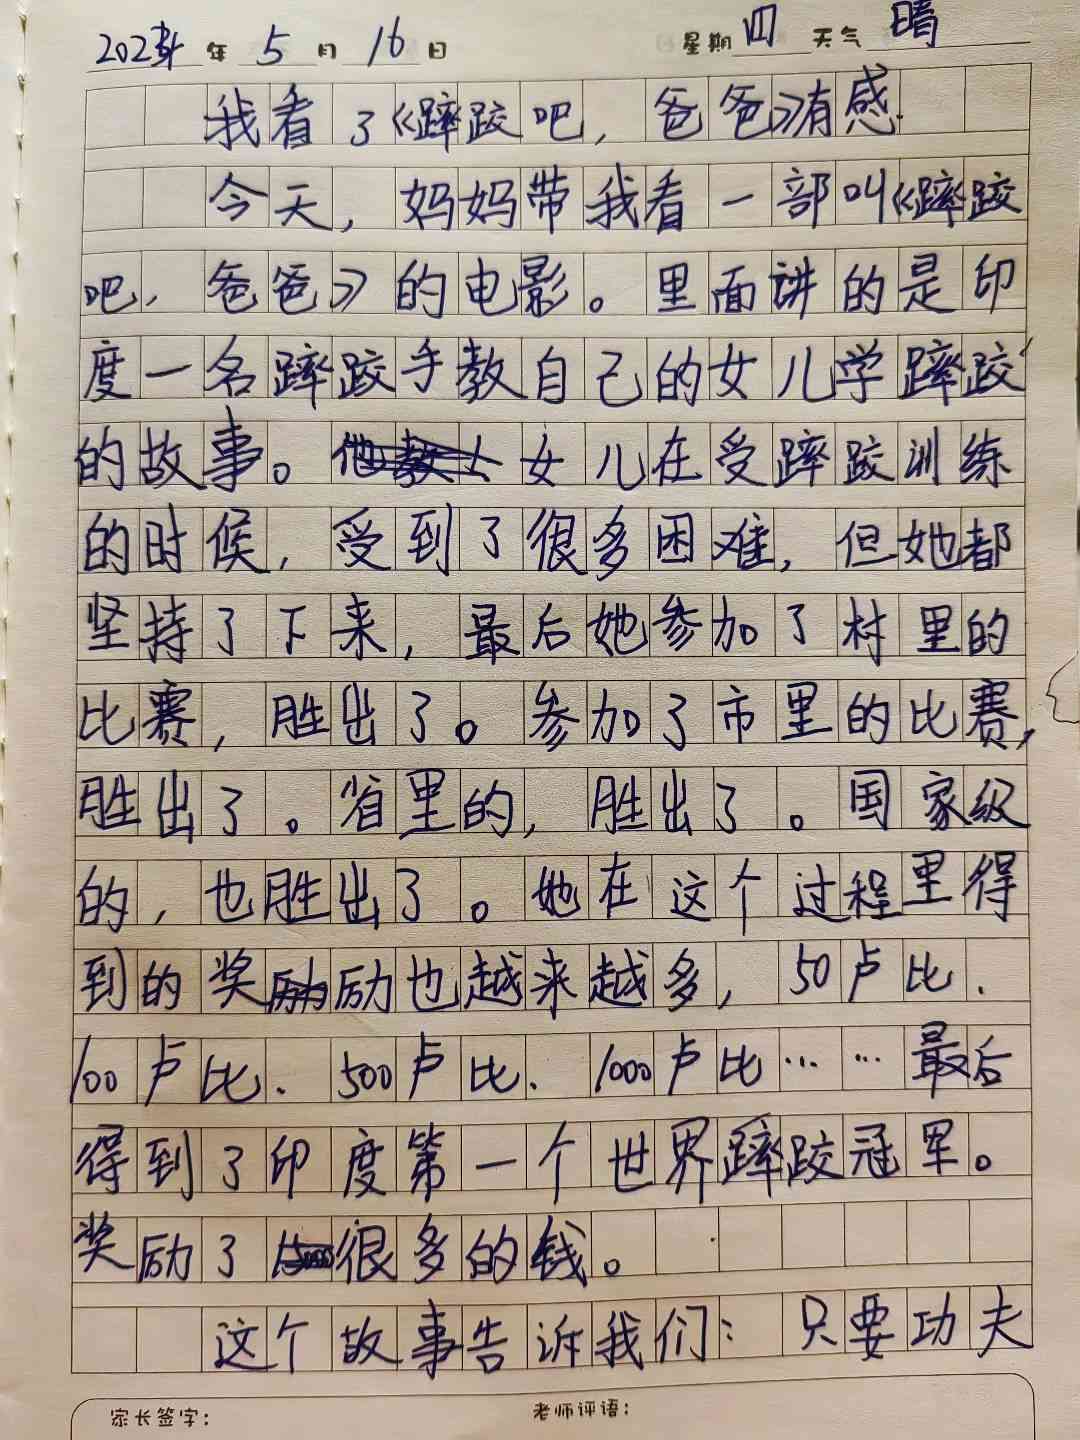 2024年5月16日 星期四 天气晴
我看了《蹿跤吧,爸爸》有感.
今天,妈妈带我看一部叫《蹿跤
吧,爸爸》的电影。里面讲的是印
度一名蹿跤手教自己的女儿学蹿跤
的故事。女儿在受蹿跤训练
的时候,受到了很多困难,但她都
坚持了下来,最后她参加了村里的
比赛,胜出了。参加了市里的比赛,
胜出了。省里的,胜出了。国家级
的,也胜出了。她在这个过程里得
到的奖励也越来越多,50卢比.
100卢比.500卢比.1000卢比……最后
得到了印度第一个世界蹿跤冠军。
奖励了很多的钱。
这个故事告诉我们:只要功夫
家长签字: 老师评语: